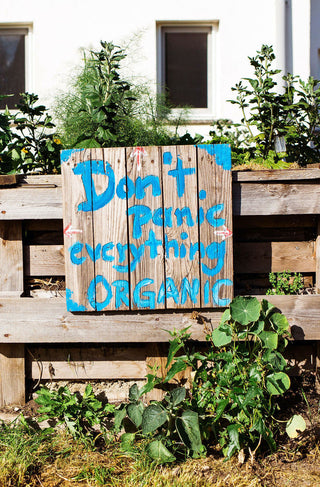 Don't
panic
everything
ORGANIC